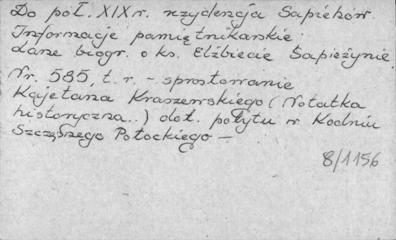 Do poł. XIX w. rezydencja Sapiehów.
Informacje pamiętnikarskie
dane biogr. o ks. Elżbiecie Sapieżynie.
Nr. 585, t. r. - sprostowanie
Kajetana Kraszewskiego (Notatka
historyczna..) dot. pobytu w Kodniu
Szczęsnego Potockiego -
8/1156